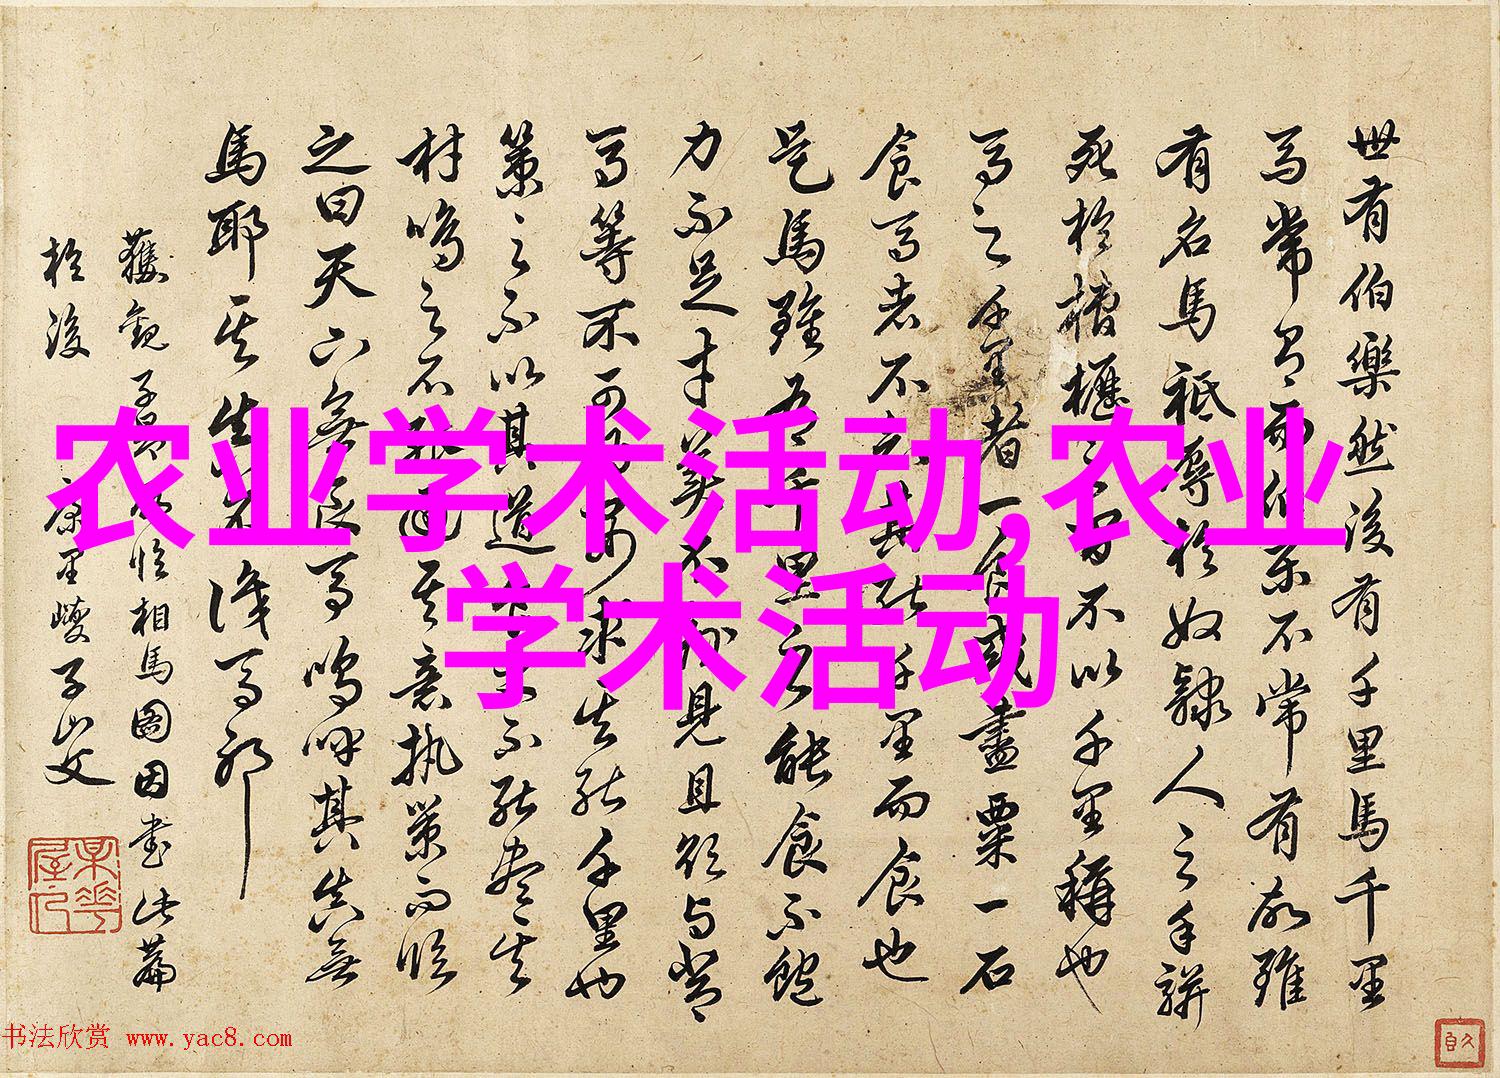 世有伯樂然後有千里馬千里
馬常有而伯樂不常有故雖
有名馬祗辱於奴隸人之手駢
死於槽櫪之間不以千里稱也
馬之千里者一食或盡粟一石
食馬者不知其能千里而食也
是馬雖有千里之能食不飽
力不足才美不外見且欲與常
馬等不可得安求其能千里也
策之不以其道食之不能盡其
材鳴之不能通其意執策而臨
之曰天下無良馬嗚呼其真無
馬耶其真不識馬耶
獲觀子昂所臨相馬圖因書此篇
於後 康里巎子山父
农业学术活动,农业
学术活动
书法欣赏 www.yac8.com